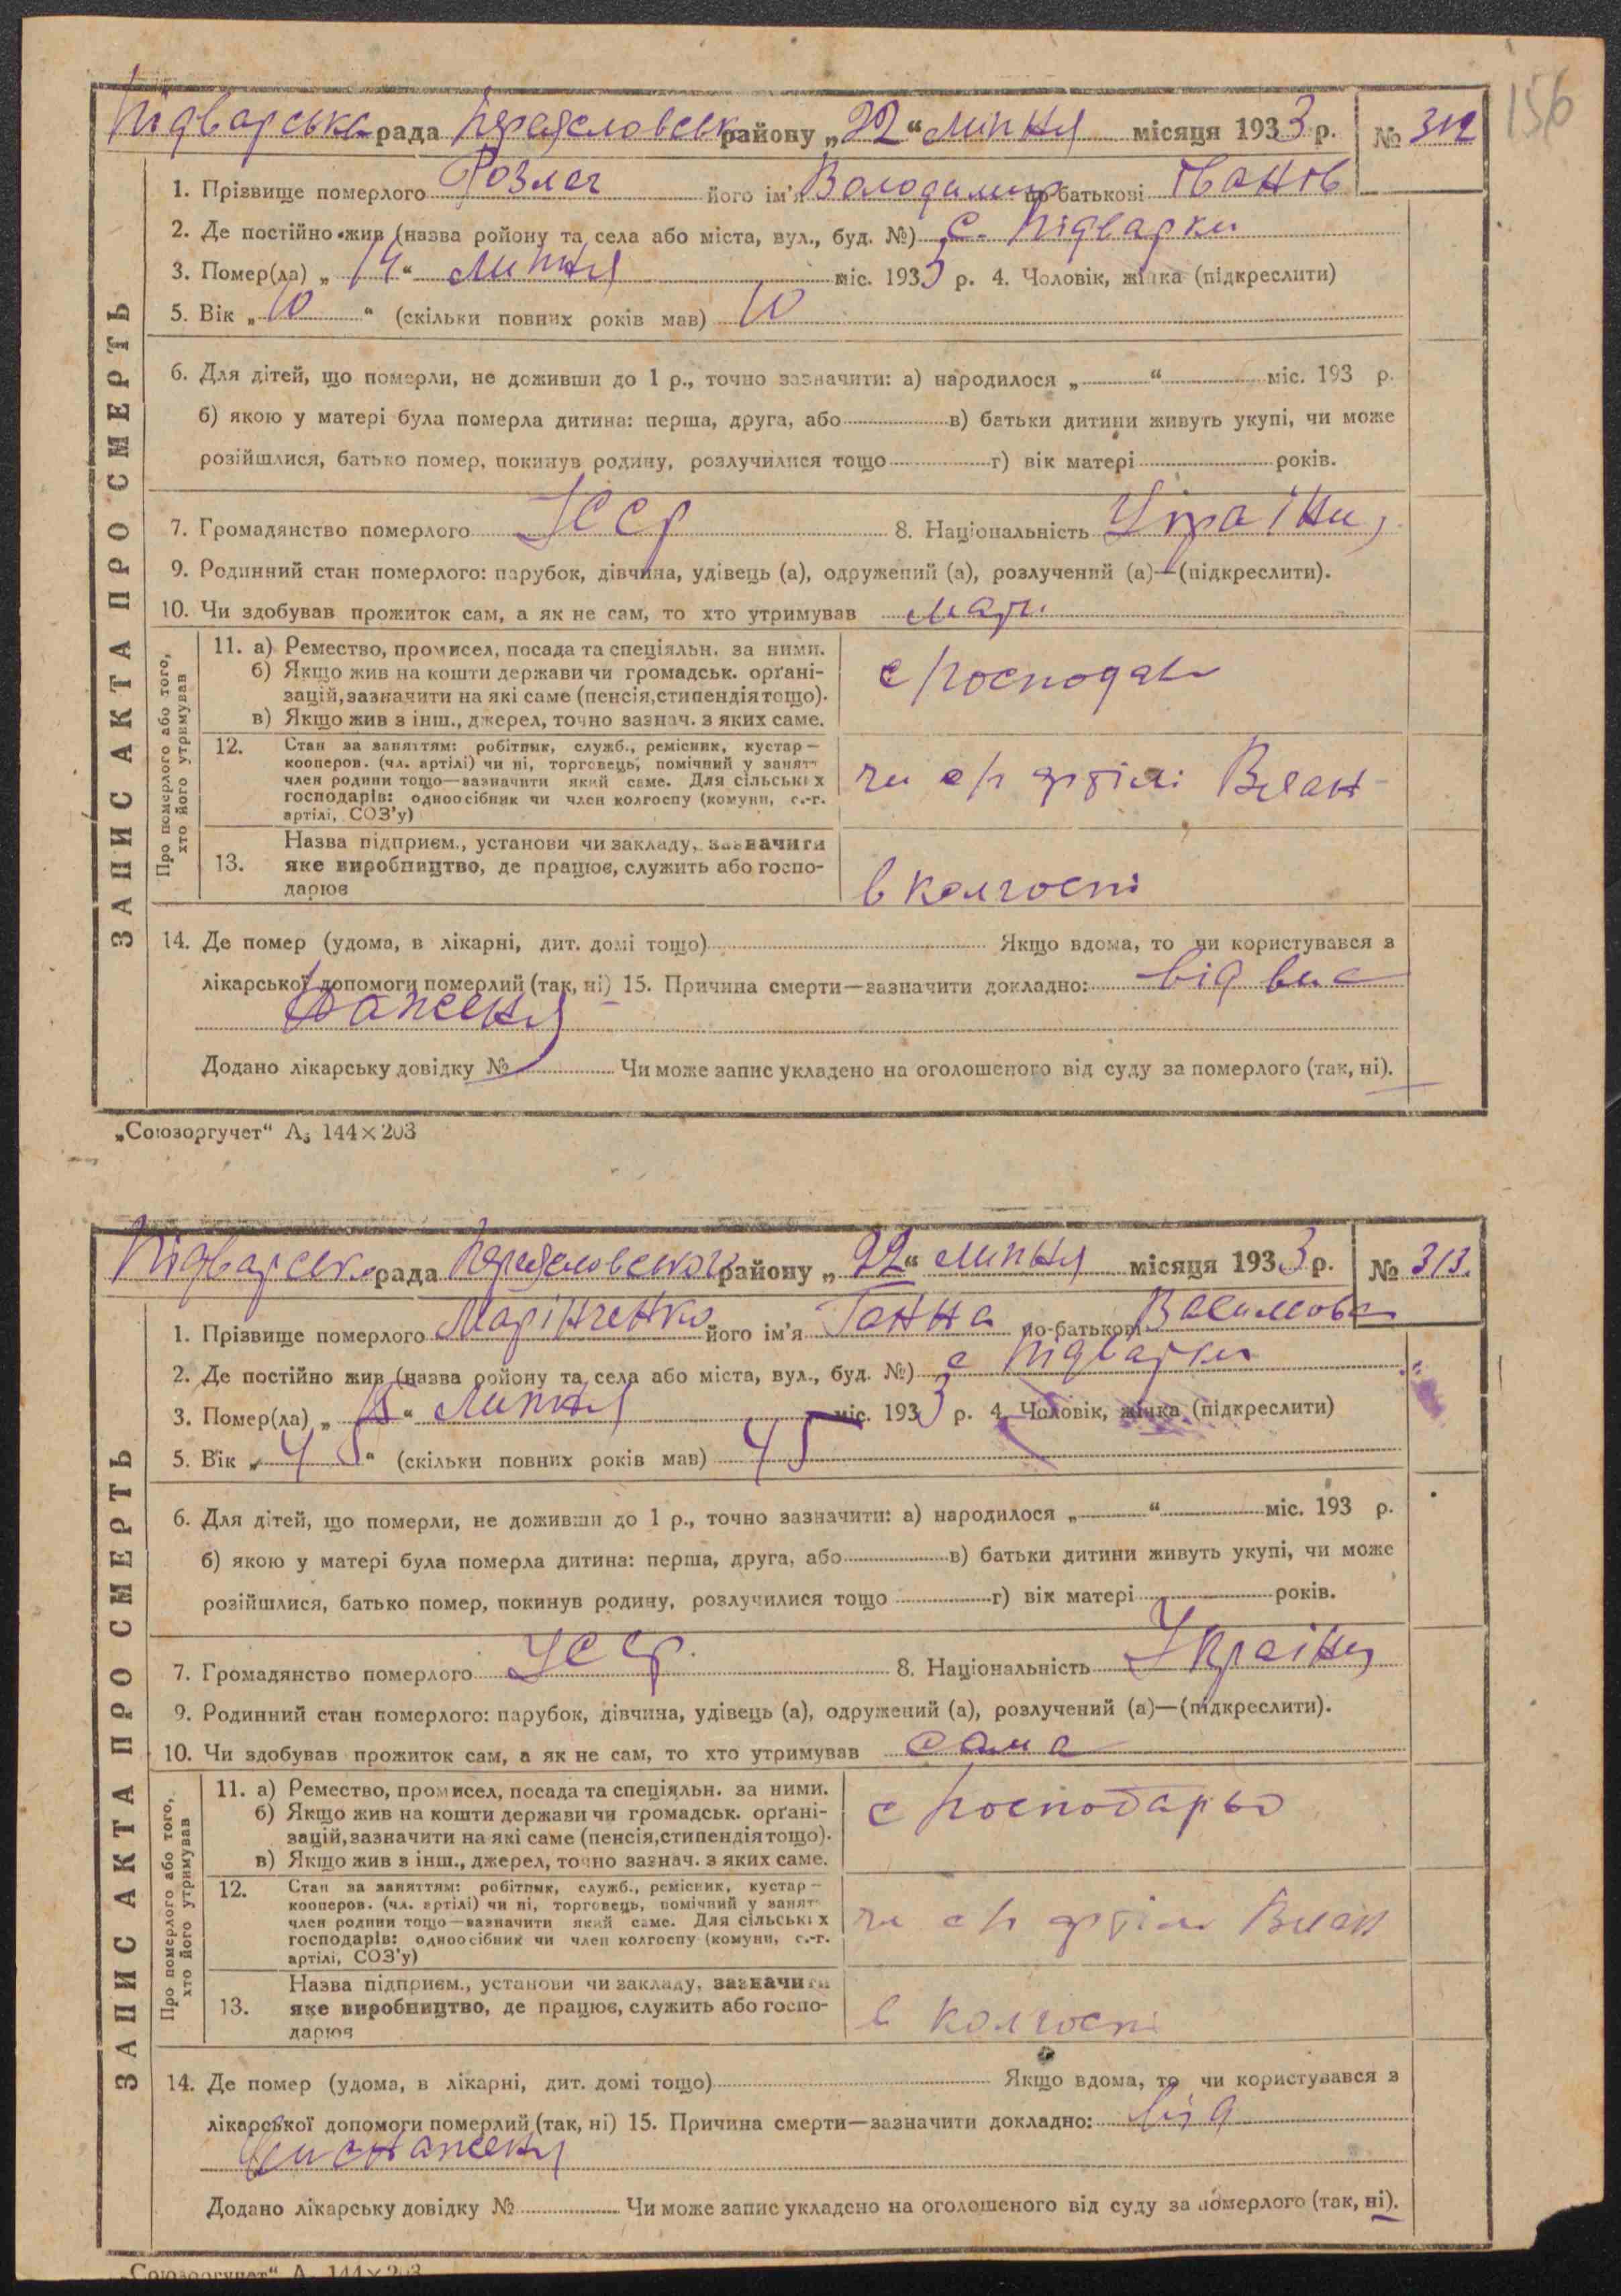 156
Підварська рада Переяславськ району „22“ липня місяця 1933 р. № 312
1. Прізвище померлого Розлач його ім'я Володимир по батькові Іванов
2. Де постійно жив (назва ройону та села або міста, вул., буд. №) с. Підварки
3. Помер(ла) „14“ липня міс. 1933 р. 4. Чоловік, жінка (підкреслити)
5. Вік „10“ (скільки повних років мав) 10
6. Для дітей, що померли, не доживши до 1 р., точно зазначити: а) народилося „ “ міс. 193 р.
б) якою у матері була померла дитина: перша, друга, або в) батьки дитини живуть укупі, чи може
розійшлися, батько помер, покинув родину, розлучилися тощо г) вік матері років.
7. Громадянство померлого УССР 8. Національність Україн
9. Родинний стан померлого: парубок, дівчина, удівець (а), одружений (а), розлучений (а)—(підкреслити).
10. Чи здобував прожиток сам, а як не сам, то хто утримував мати
ЗАПИС АКТА ПРО СМЕРТЬ
Про померлого або того, хто його утримував
11. а) Ремество, промисел, посада та спеціяльн. за ними.
б) Якщо жив на кошти держави чи громадськ. орґані-
зацій, зазначити на які саме (пенсія, стипендія тощо).
в) Якщо жив з інш., джерел, точно зазнач. з яких саме.
с/господар
12. Стан за заняттям: робітник, служб., ремісник, кустар—
кооперов. (чл. артілі) чи ні, торговець, помічний у занят
член родини тощо—зазначити який саме. Для сільських
господарів: одноосібник чи член колгоспу (комуни, с.-г.
артілі, СОЗ'у)
чл с/г артілі
13. Назва підприєм., установи чи закладу, зазначити
яке виробництво, де працює, служить або госпо-
дарює
в колгоспі
14. Де помер (удома, в лікарні, дит. домі тощо) Якщо вдома, то чи користувався з
лікарської допомоги померлий (так, ні) 15. Причина смерти—зазначити докладно: від вис
наження
Додано лікарську довідку № Чи може запис укладено на оголошеного від суду за померлого (так, ні).
„Союзоргучет“ А5 144×203
Підварськ рада Переяславського району „22“ липня місяця 1933 р. № 313.
1. Прізвище померлого Марінченко його ім'я Ганна по-батькові Василова
2. Де постійно жив (назва ройону та села або міста, вул., буд. №) с Підварки
3. Помер(ла) „15“ липня міс. 1933 р. 4. Чоловік, жінка (підкреслити)
5. Вік „45“ (скільки повних років мав) 45
6. Для дітей, що померли, не доживши до 1 р., точно зазначити: а) народилося „ “ міс. 193 р.
б) якою у матері була померла дитина: перша, друга, або в) батьки дитини живуть укупі, чи може
розійшлися, батько помер, покинув родину, розлучилися тощо г) вік матері років.
7. Громадянство померлого УССР. 8. Національність Україн
9. Родинний стан померлого: парубок, дівчина, удівець (а), одружений (а), розлучений (а)—(підкреслити).
10. Чи здобував прожиток сам, а як не сам, то хто утримував сама
ЗАПИС АКТА ПРО СМЕРТЬ
Про померлого або того, хто його утримував
11. а) Ремество, промисел, посада та спеціяльн. за ними.
б) Якщо жив на кошти держави чи громадськ. орґані-
зацій, зазначити на які саме (пенсія, стипендія тощо).
в) Якщо жив з інш., джерел, точно зазнач. з яких саме.
с/господарь
12. Стан за заняттям: робітник, служб., ремісник, кустар—
кооперов. (чл. артілі) чи ні, торговець, помічний у занят
член родини тощо—зазначити який саме. Для сільських
господарів: одноосібник чи член колгоспу (комуни, с.-г.
артілі, СОЗ'у)
чл с/г артілі
13. Назва підприєм., установи чи закладу, зазначити
яке виробництво, де працює, служить або госпо-
дарює
в колгоспі
14. Де помер (удома, в лікарні, дит. домі тощо) Якщо вдома, то чи користувався з
лікарської допомоги померлий (так, ні) 15. Причина смерти—зазначити докладно: від
виснаження
Додано лікарську довідку № Чи може запис укладено на оголошеного від суду за померлого (так, ні).
„Союзоргучет“ А5 144×203